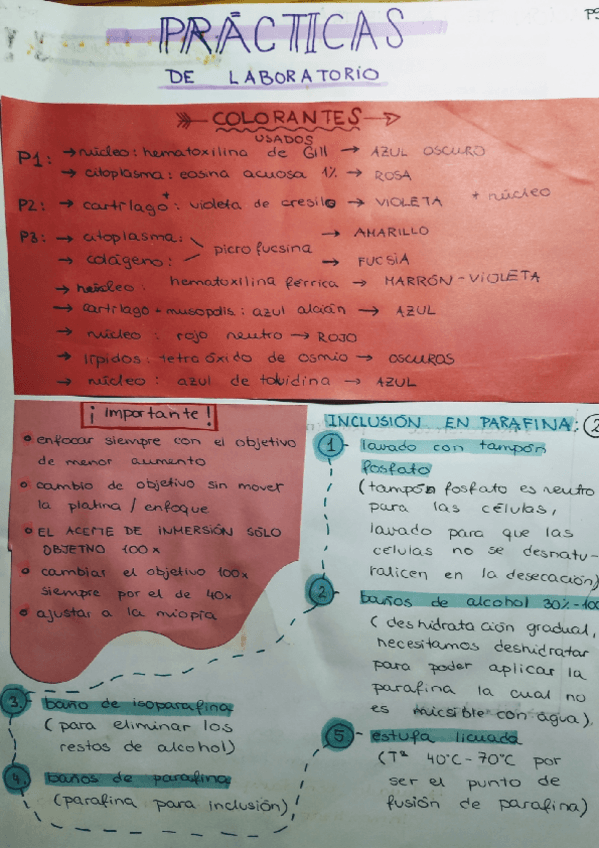 PRÁCTICAS
DE LABORATORIO
COLORANTES
USADOS
P1: → núcleo: hematoxilina de Gill → AZUL OSCURO
→ citoplasma: eosina acuosa 1% → ROSA
P2: → cartílago + : violeta de cresilo → VIOLETA + núcleo
P3: → citoplasma: → AMARILLO
picrofucsina
→ colágeno: → FUCSIA
→ núcleo: hematoxilina férrica → MARRÓN-VIOLETA
→ cartílago + : azul alcián → AZUL
→ núcleo: rojo neutro → ROJO
→ lípidos: tetraóxido de osmio → OSCUROS
→ núcleo: azul de toluidina → AZUL
¡Importante!
• enfocar siempre con el objetivo
de menor aumento
• cambio de objetivo sin mover
la platina / enfoque
• EL ACEITE DE INMERSIÓN SÓLO
OBJETIVO 100x
• cambiar el objetivo 100x
siempre por el de 40x
• ajustar a la miopía
INCLUSIÓN EN PARAFINA:
1 - lavado con tampón
fosfato
(tampón fosfato es neutro
para las células,
lavado para que las
células no se desnatu-
ralicen en la desecación)
2 - baños de alcohol 30%-100
(deshidratación gradual,
necesitamos deshidratar
para poder aplicar la
parafina la cual no
es micsible con agua).
3. - baño de isoparafina
(para eliminar los
restos de alcohol)
4. baños de parafina
(parafina para inclusión)
5 - estufa licuada
(Tª 40°C-70°C por
ser el punto de
fusión de parafina)